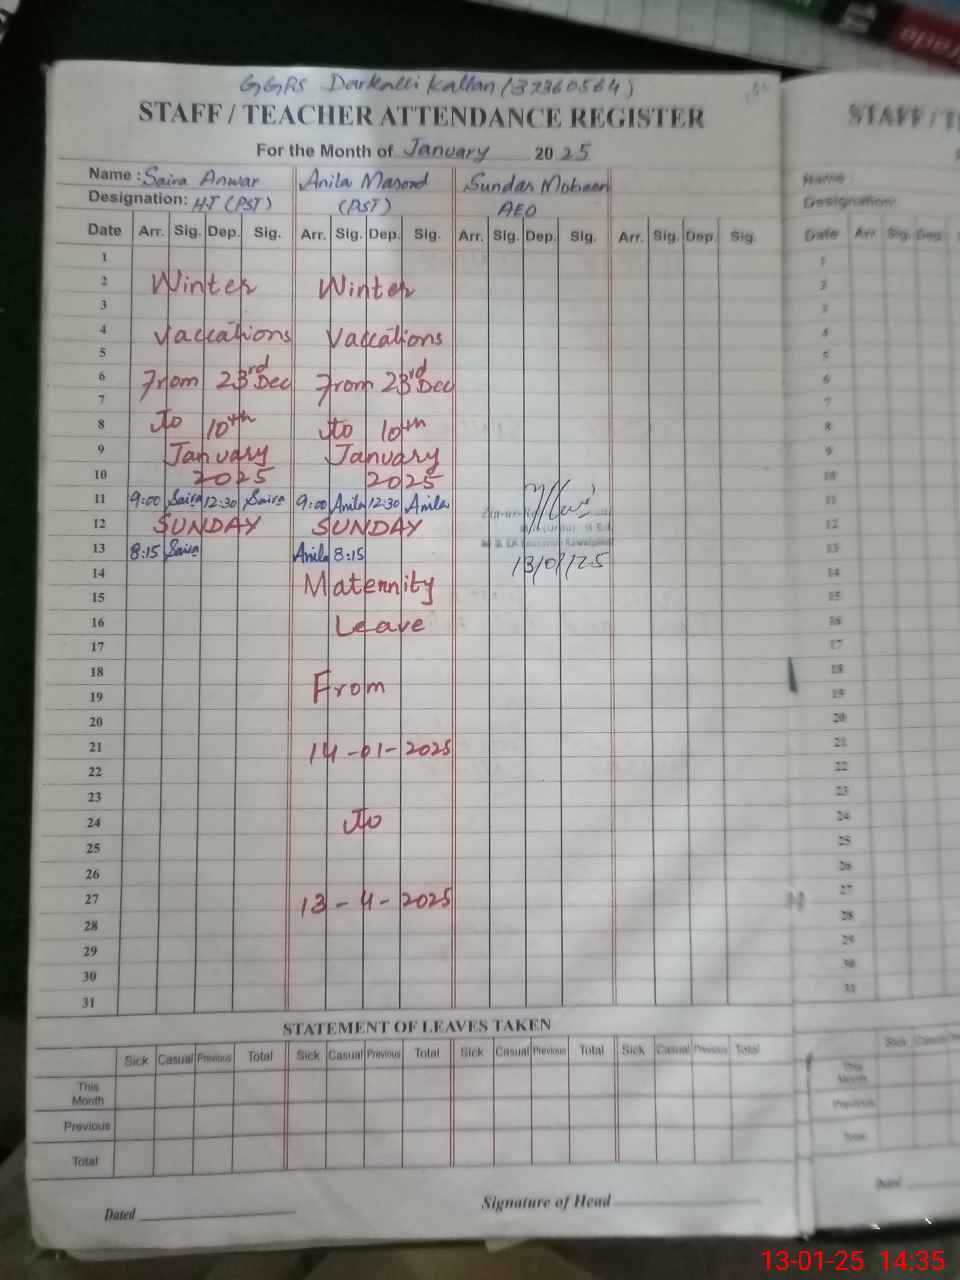 GGPS Darkalli Kallan (37360564)
STAFF / TEACHER ATTENDANCE REGISTER
For the Month of January 2025
Name : Saira Anwar Anila Masood Sundas Mobeen
Designation: HT (PST) (PST) AEO
Date Arr. Sig. Dep. Sig. Arr. Sig. Dep. Sig. Arr. Sig. Dep. Sig. Arr. Sig. Dep. Sig.
1
2 Winter Winter
3
4 Vaccations Vaccations
5
6 From 23rd Dec From 23rd Dec
7
8 To 10th To 10th
9 January January
10 2025 2025
11 9:00 Saira 12:30 Saira 9:00 Anila 12:30 Anila
12 SUNDAY SUNDAY
13 8:15 Saira Anila 8:15
13/01/25
14 Maternity
15
16 Leave
17
18
19 From
20
21 14-01-2025
22
23
24 To
25
26
27 13-4-2025
28
29
30
31
STATEMENT OF LEAVES TAKEN
Sick Casual Previous Total Sick Casual Previous Total Sick Casual Previous Total Sick Casual Previous Total
This Month
Previous
Total
Dated
Signature of Head
STAFF / T
Name
Designation:
Date Arr. Sig. Dep.
1
2
3
4
5
6
7
8
9
10
11
12
13
14
15
16
17
18
19
20
21
22
23
24
25
26
27
28
29
30
31
Sick Casual
This Month
Previous
Total
Dated
13-01-25 14:35